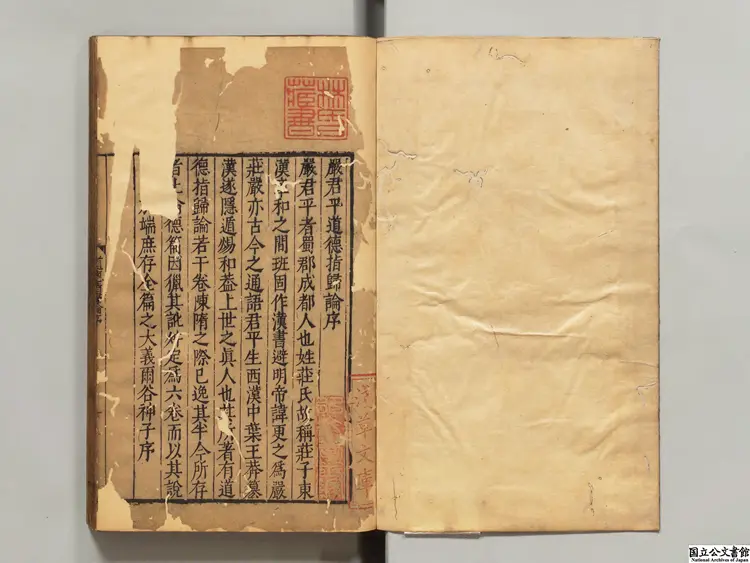 林氏藏書
嚴君平道德指歸論序
嚴君平者蜀郡成都人也姓莊氏故稱莊子東
漢章和之間班固作漢書避明帝諱更之爲嚴
莊嚴亦古今之通語君平生西漢中葉王莽篡
漢遂隱遁煬和葢上世之眞人也其所著有道
德指歸論若干卷陳隋之際已逸其半今所存
者止論德篇因獵其訛舛定爲六卷而以其說
端庶存全篇之大義爾谷神子序
淺草文庫
国立公文書館
National Archives of Japan